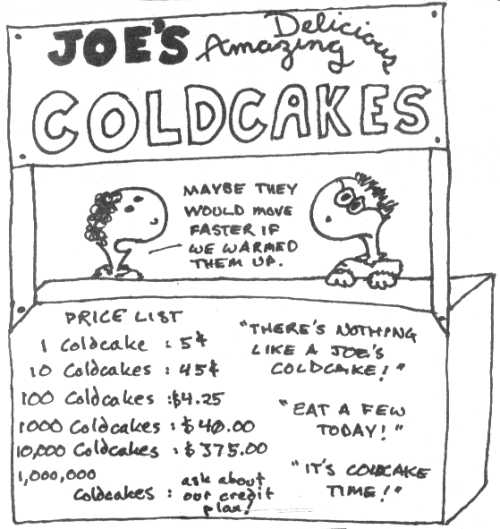 JOE'S Amazing Delicious
COLDCAKES
MAYBE THEY
WOULD MOVE
FASTER IF
WE WARMED
THEM UP.
PRICE LIST
1 Coldcake : 5¢
10 Coldcakes : 45¢
100 Coldcakes : $4.25
1000 Coldcakes : $40.00
10,000 Coldcakes : $375.00
1,000,000
Coldcakes : ask about
our credit
plan!
"THERE'S NOTHING
LIKE A JOE'S
COLDCAKE!"
"EAT A FEW
TODAY!"
"IT'S COLDCAKE
TIME!"